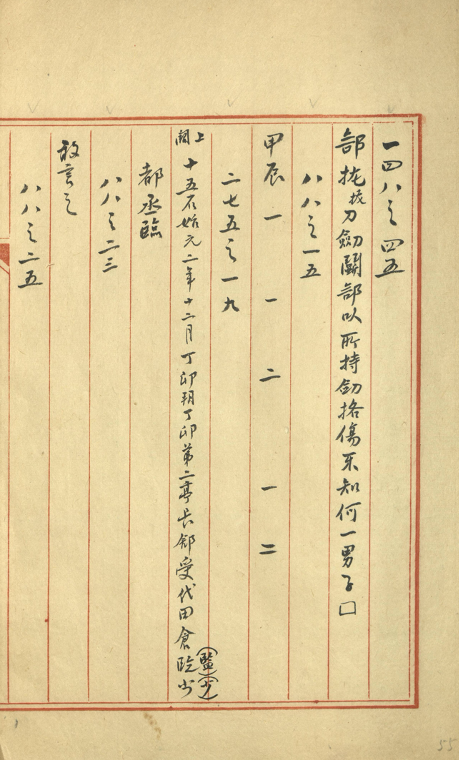 一四八之四五
部拢拔刀劔鬭部以所持劔挌傷不知何一男子□
八八之一五
甲辰 一 一 二 一 二
二七五之一九
上闕 十五石始元二年十二月丁卯朔丁卯第二亭長郤受代田倉臨步(監)(步)
都丞臨
八八之二三
敢言之
八八之二五
55